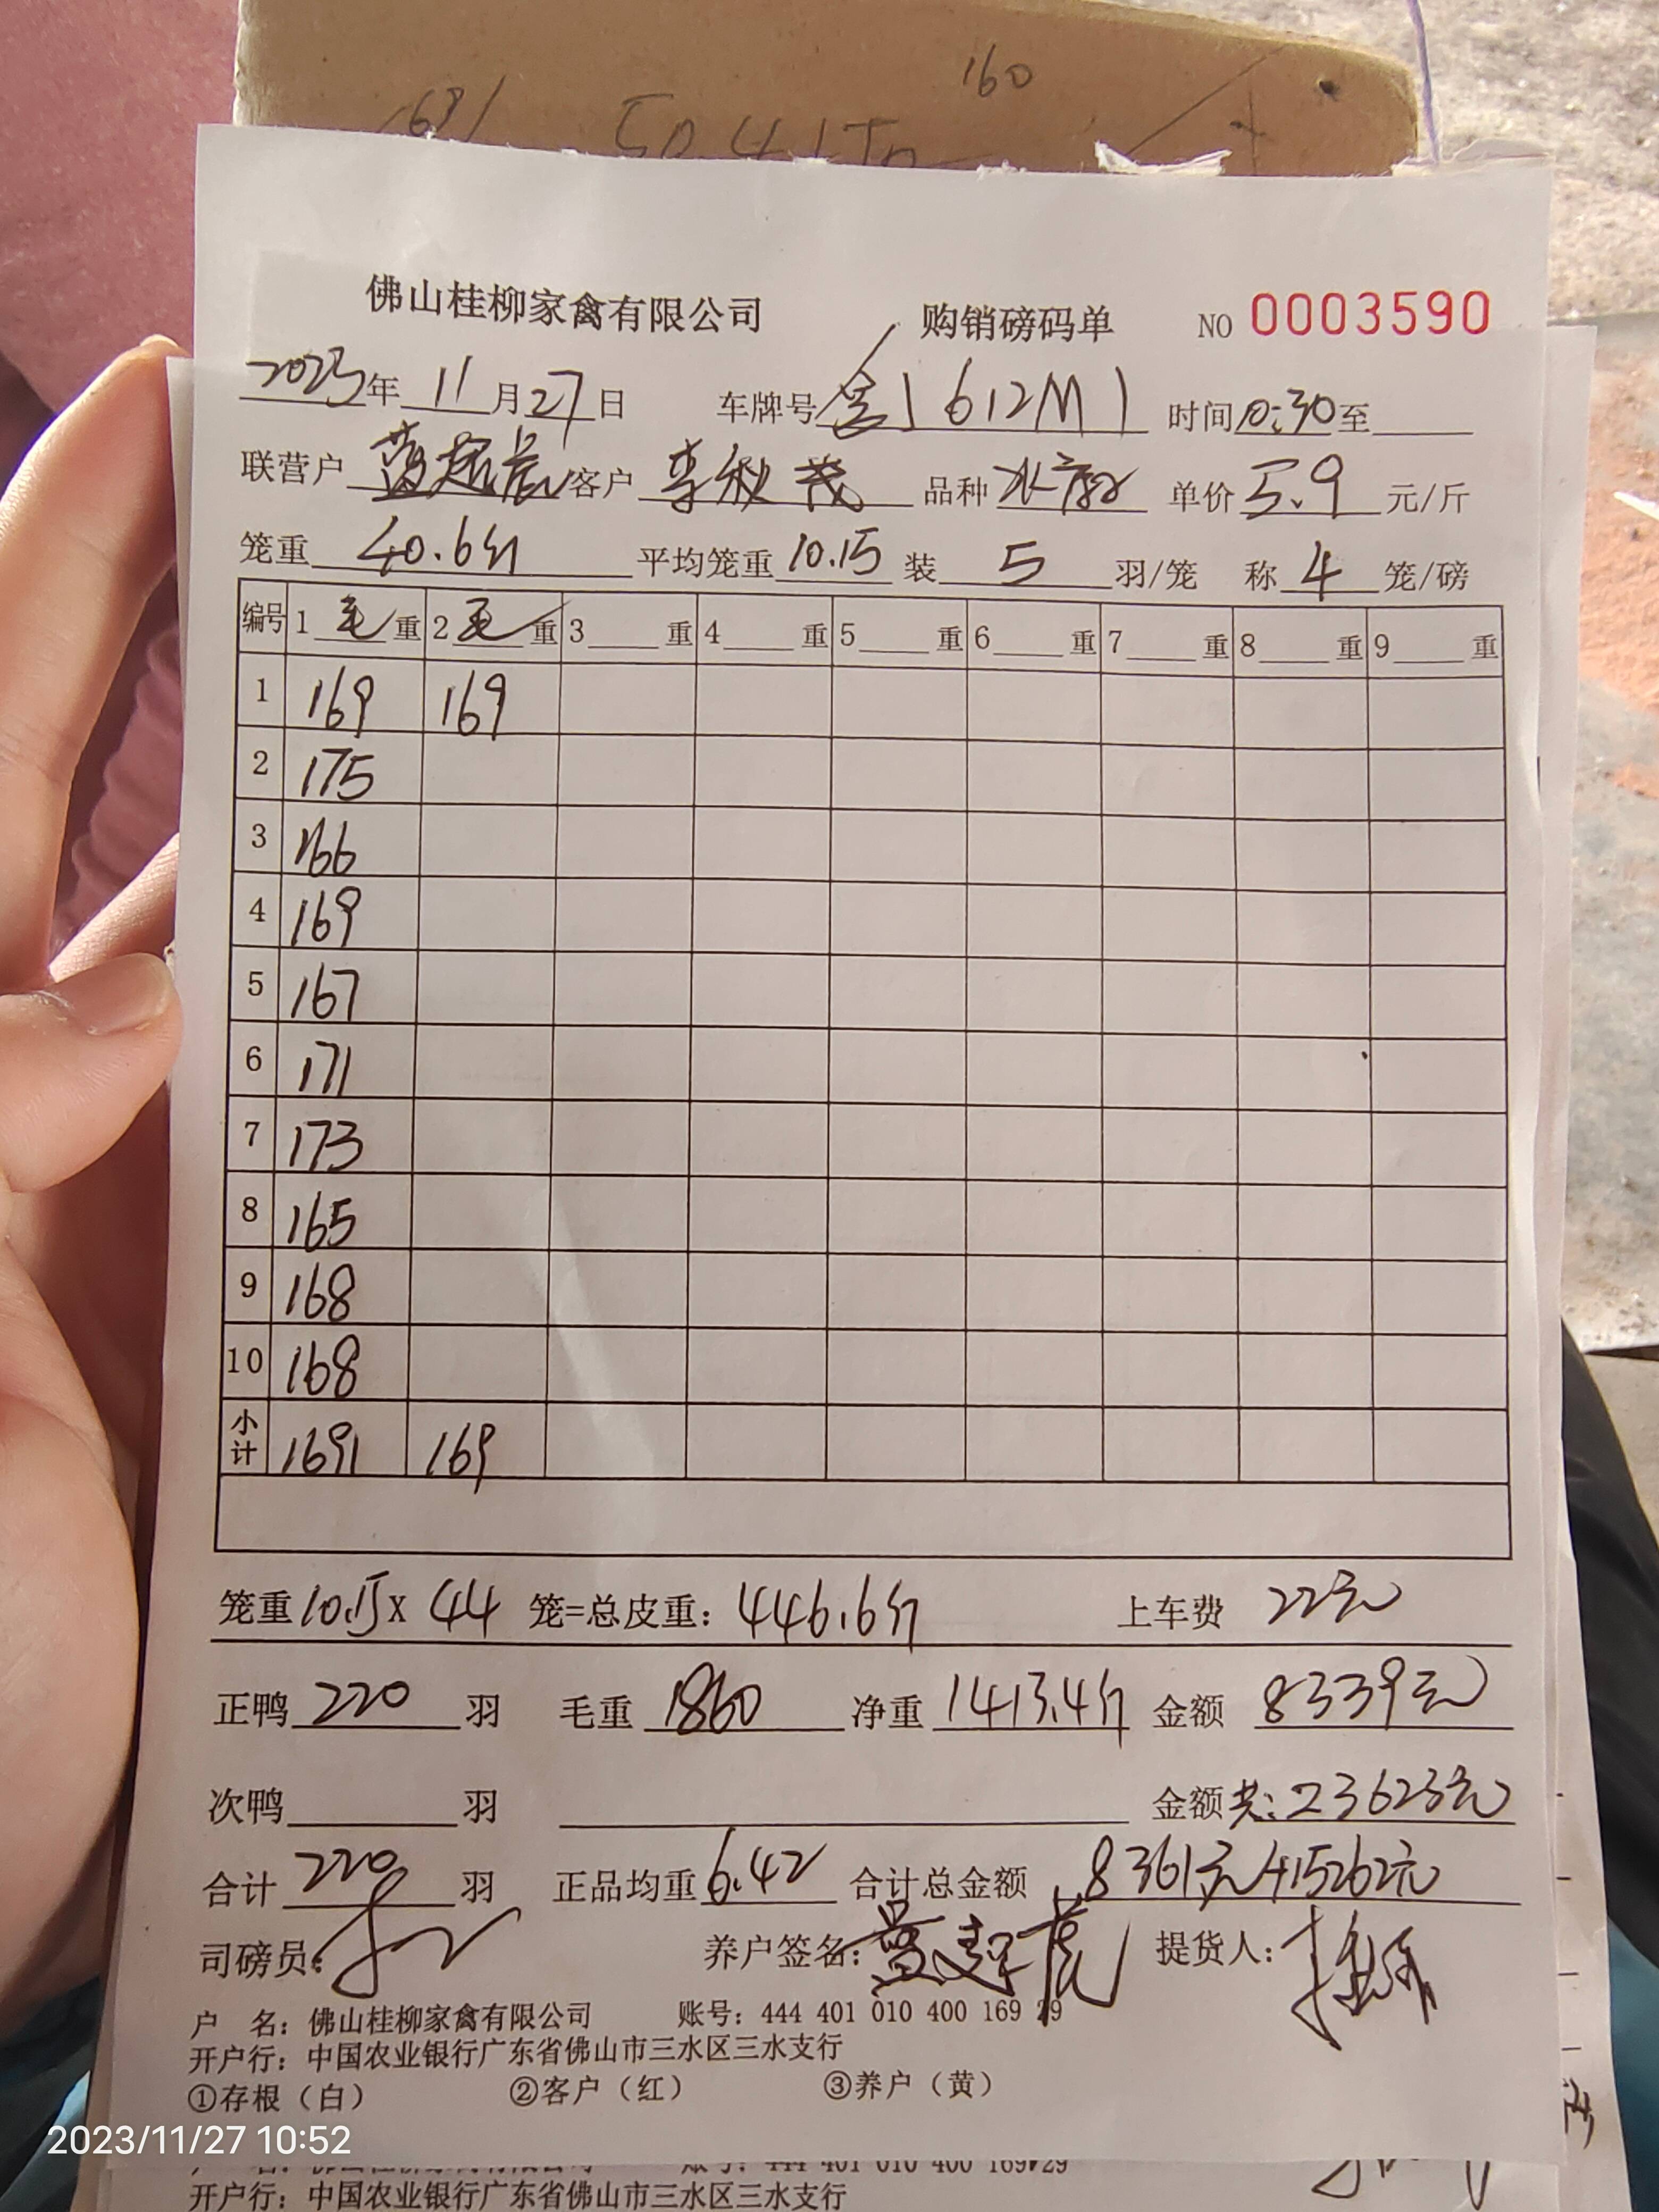 160
佛山桂柳家禽有限公司 购销磅码单 NO 0003590
2023年11月27日 车牌号 1612M1 时间10:30至
联营户 客户 李秋茂 品种 水 单价5.9元/斤
笼重40.6斤 平均笼重10.15 装5羽/笼 称4笼/磅
编号 1毛重 2毛重 3重 4重 5重 6重 7重 8重 9重
1 169 169
2 175
3 166
4 169
5 167
6 171
7 173
8 165
9 168
10 168
小计 1691 169
笼重10.15X 44 笼=总皮重:446.6斤 上车费 22元
正鸭220羽 毛重1860 净重1413.4斤 金额 8339元
次鸭 羽 金额共:23623元
合计220羽 正品均重6.42 合计总金额 8361元+15262元
司磅员: 养户签名: 提货人:
户 名:佛山桂柳家禽有限公司 账号:444 401 010 400 169 29
开户行:中国农业银行广东省佛山市三水区三水支行
①存根(白) ②客户(红) ③养户(黄)
2023/11/27 10:52
开户行:中国农业银行广东省佛山市三水区三水支行